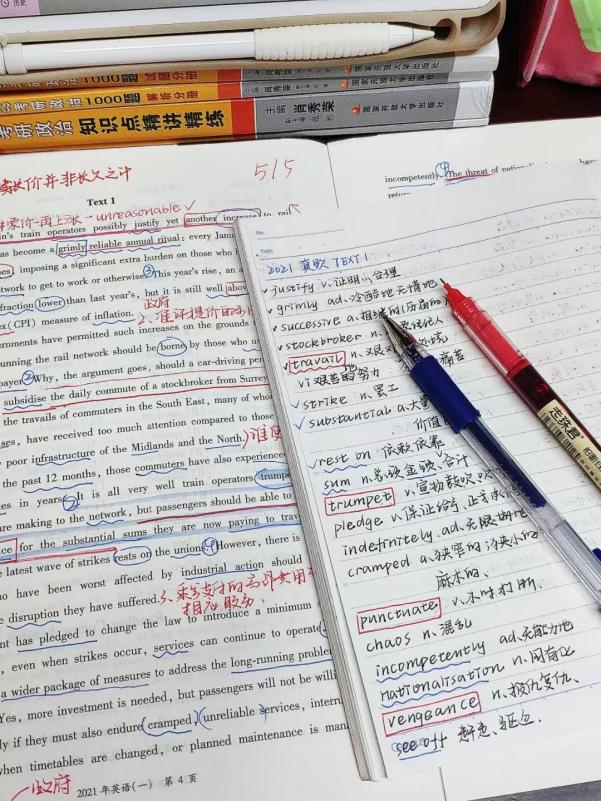 历史
1000题 试题分册
国家开放大学出版社
考研政治1000题 解析分册
国家开放大学出版社
考研政治 知识点精讲精练
主编 肖秀荣
国家开放大学出版社
涨价并非长久之计
5/5
Text 1
unreasonable
train operators possibly justify yet another increase to rail
as become a grimly reliable annual ritual: every January
imposing a significant extra burden on those who
network to get to work or otherwise. This year's rise, an
fraction lower than last year's, but it is still well above
政府
(CPI) measure of inflation.
ernments have permitted such increases on the grounds
unning the rail network should be borne by those who
payer. Why, the argument goes, should a car-driving pen
subsidise the daily commute of a stockbroker from Surrey
the travails of commuters in the South East, many of whom
ses, have received too much attention compared to those
poor infrastructure of the Midlands and the North
the past 12 months, those commuters have also experienced
es in years. It is all very well train operators trumpet
are making to the network, but passengers should be able to
for the substantial sums they are now paying to trav
latest wave of strikes rests on the unions. However, there is
who have been worst affected by industrial action should
he disruption they have suffered.
3、乘客支付的高昂费用
相应服务
ent has pledged to change the law to introduce a minimum
, even when strikes occur, services can continue to operate
a wider package of measures to address the long-running problem
Yes, more investment is needed, but passengers will not be willing
ly if they must also endure cramped, unreliable services, interru
when timetables are changed, or planned maintenance is man
政府
2021年英语(一) 第4页
incompetently. The threat of
No.
Date
2021 真题 TEXT 1
justify v. 证明…合理
grimly ad. 冷酷地 无情地
successive a.
stockbroker n.
travail n.
痛苦
vi 艰苦的努力
strike n. 罢工
substantial a. 大量
价值
rest on 依赖 依靠
sum n. 总额 金额、合计
trumpet v. 宣扬 鼓吹
pledge v. 保证给予
indefinitely ad. 无限期地
cramped a. 狭窄的 狭小的
麻木的、
punctuate v. 不时打断
chaos n. 混乱
incompetently ad 无能力地
nationalisation n. 国有化
vengeance n. 报仇 复仇
see off